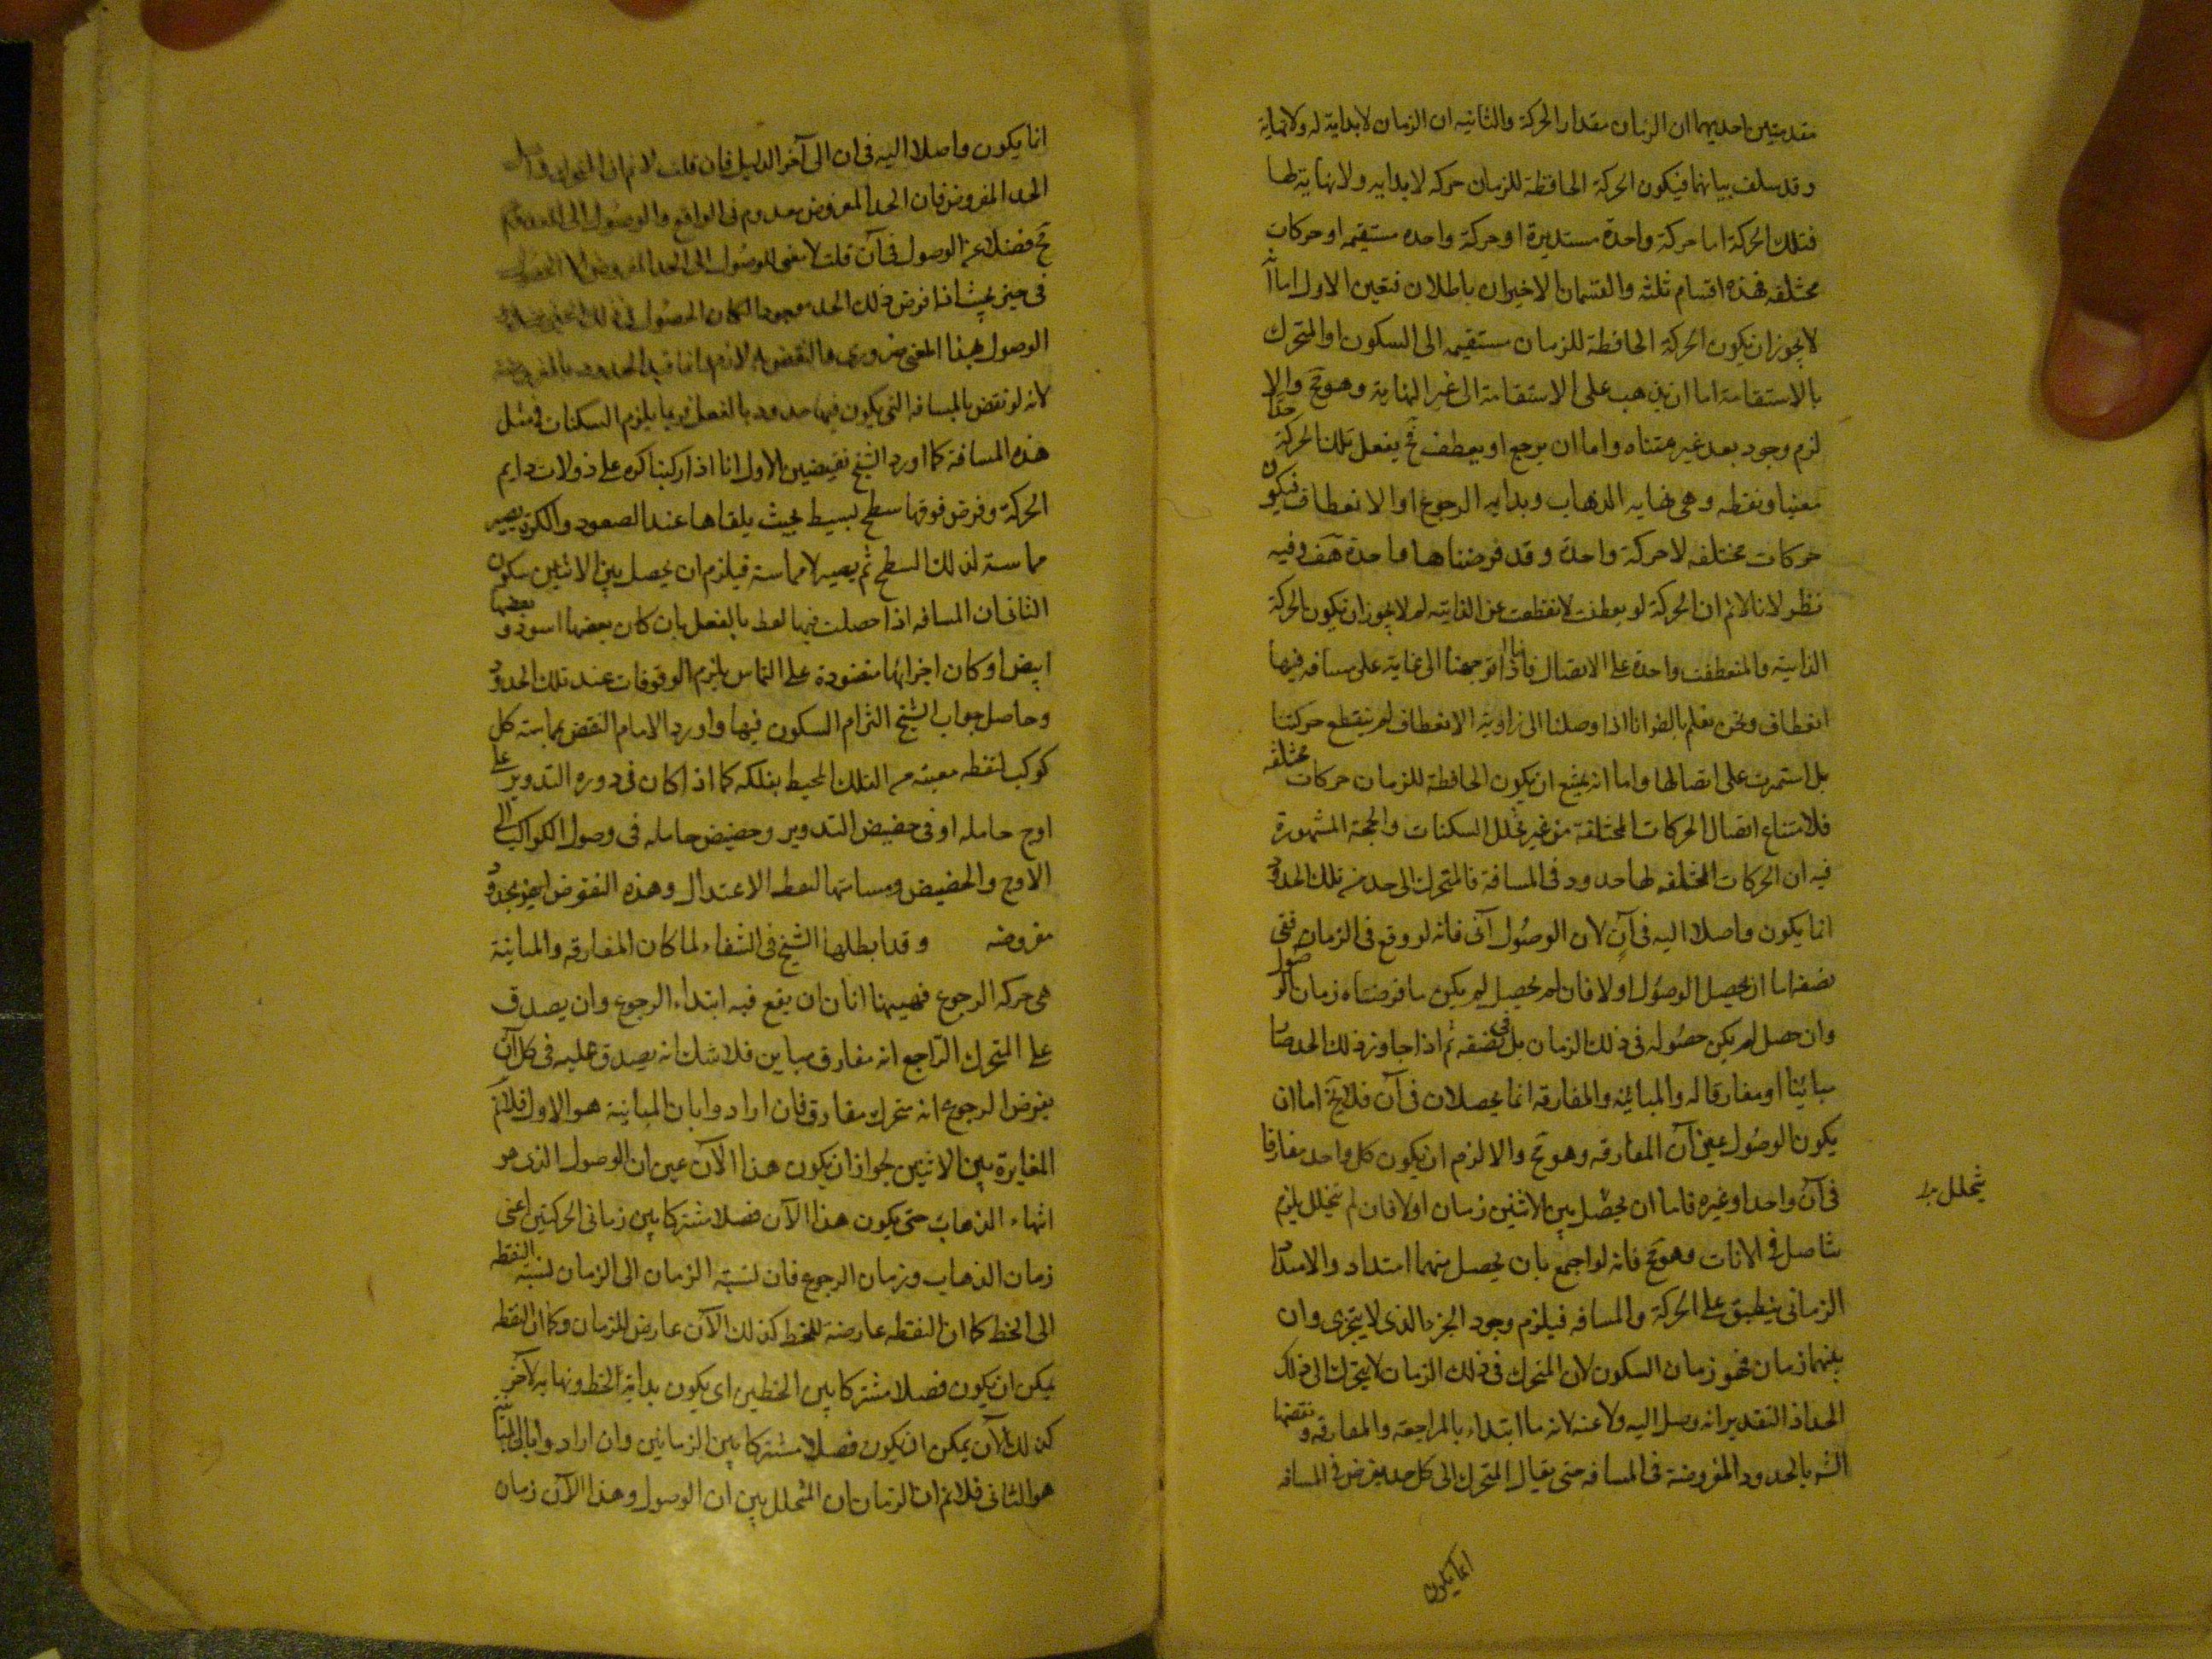 مقدمتين احديهما ان الزمان مقدار الحركة والثانيه ان الزمان لا بداية له ولا نهاية
وقد سلف بيانهما فيكون الحركة الحافظة للزمان حركه لا بدايه ولا نهاية لها
فتلك الحركة اما حركة واحدة مستديرة او حركة واحده مستقيمه او حركات
مختلفه فهذه اقسام ثلثه والقسمان الاخيران باطلان فتعين الاول اما انه
لا يجوز ان يكون الحركة الحافظة للزمان مستقيمه الى السكون او المتحرك
بالاستقامة اما ان يذهب على الاستقامة الى غير النهاية وهو مح والا
لزم وجود بعد غير متناه واما ان يرجع او ينعطف فح يفعل تلك الحركة حدا
معينا ونقطه وهى نهايه الذهاب وبدايه الرجوع او الانعطاف فيكون
حركات مختلفه لا حركة واحدة وقد فرضناها واحدة هف وفيه
نظر لانا لانم ان الحركة لو انعطفت لانقطعت عن الذاتيه لم لا يجوز ان يكون الحركة
الذاهبة والمنعطفة واحدة على الاتصال فانا اذا توجهنا الى غاية على مسافه فيها
انعطاف ونحن نعلم بالضر انا اذا وصلنا الى زاوية الانعطاف لم ينقطع حركتنا
بل استمرت على اتصالها واما انه يمتنع ان يكون الحافظة للزمان حركات مختلفه
فلامتناع اتصال الحركات المختلفة من غير تخلل السكنات والحجة المشهورة
فيه ان الحركات المختلفه لها حدود فى المسافة فالمتحرك الى حد من تلك الحدود
انما يكون واصلا اليه فى آن لان الوصول آنى فانه لو وقع فى الزمان ففى
نصفه اما ان يحصل الوصول او لا فان لم يحصل لم يكن ما فرضناه زمان الوصول
وان حصل لم يكن حصوله فى ذلك الزمان بل فى نصفه ثم اذا جاوز ذلك الحد صار
مباينا او مفارقا له والمباينه والمفارقه انما يحصلان فى آن فلا يخ اما ان
يكون الوصول عين آن المفارقه وهو مح والا لزم ان يكون كل واحد مفارقا
فى آن واحد او غيره فاما ان يحصل بين الاثنين زمان او لا فان لم يتخلل يلزم
يتخلل
تتاصل فى الانات وهو مح فانه لو اجمع بان يحصل منهما امتداد والامتداد
الزمانى ينطبق على الحركة والمسافه فيلزم وجود الجزء الذى لا يتجزى وان
بينهما زمان فهو زمان السكون لان المتحرك فى ذلك الزمان لا يتحرك الى ذلك
الحد اذ التقدير انه وصل اليه ولا عنه لانه ما ابتداء بالمراجعة والمفارقه ونقضها
الشر بالحدود المفروضة فى المسافه حتى يقال المتحرك الى كل حد يفرض فى المسافه
انما يكون
انما يكون واصلا اليه فى ان الى آخر الدليل فان قلت لانم ان المتحرك
الحد المفروض فان الحد المفروض معدوم فى الواقع والوصول الى المعدوم
مح فضلا عن الوصول فى آن قلت لا معنى للوصول الى الحد المفروض الا الحصول
فى حيز بحيث اذا فرض ذلك الحد موجودا لكان الحصول فى ذلك الحيز
الوصول بهذا المعنى ضرورى والنقض لازم اما قيد الحدود بالمفروضة
لانه لو نقض بالمسافه التى يكون فيها حدود بالفعل ربما يلزم السكنات فى مثل
هذه المسافة كما اورد الشيخ نقيضين الاول انا اذا ركبنا كره على دولاب دايم
الحركة وفرض فوقها سطح بسيط بحيث يلقاها عند الصعود والكرة يصير
مماسة لذلك السطح ثم يصير لا مماسة فيلزم ان يحصل بين الاثنين سكون
الثانى ان المسافه اذا حصلت فيها نقط بالفعل بان كان بعضها اسود وبعضها
ابيض او كان اجزائها منضودة على التماس يلزم الوقوفات عند تلك الحدود
وحاصل جواب الشيخ التزام السكون فيها واورد الامام النقض بمماسة كل
كوكب لنقطه معينه من الفلك المحيط بفلكه كما اذا كان فى دوره التدوير على
اوج حامله او فى حضيض التدوير وحضيض حامله فى وصول الكواكب الى
الاوج والحضيض ومسامتها لنقطه الاعتدال وهذه النقوض ايض بحدود
مفروضه وقد ابطلها الشيخ فى الشفاء لما كان المفارقه والمباينة
هى حركه الرجوع فهيهنا انان ان يقع فيه ابتداء الرجوع وان يصدق
على المتحرك الراجع انه مفارق مباين فلا شك انه يصدق عليه فى كل آن
يفرض الرجوع انه متحرك مفارق فان ارادوا بان المباينة هو الاول فلانم
المغايرة بين الاثنين لجواز ان يكون هذا الآن عين ان الوصول الذى هو
انتهاء الذهاب حتى يكون هذا الآن فصلا مشتركا بين زمانى الحركتين اعنى
زمان الذهاب وزمان الرجوع فان نسبته الزمان الى الزمان نسبة النقطه
الى الخط كما ان النقطه عارضة للخط كذلك الآن عارض للزمان وكما ان النقطه
يمكن ان يكون فصلا مشتركا بين الخطين اى يكون بداية الخط ونهايه لآخر
كذلك الآن يمكن ان يكون فصلا مشتركا بين الزمانين وان ارادوا بان المباينه
هو الثانى فلانم ان الزمان المتخلل بين ان الوصول وهذا الآن زمان